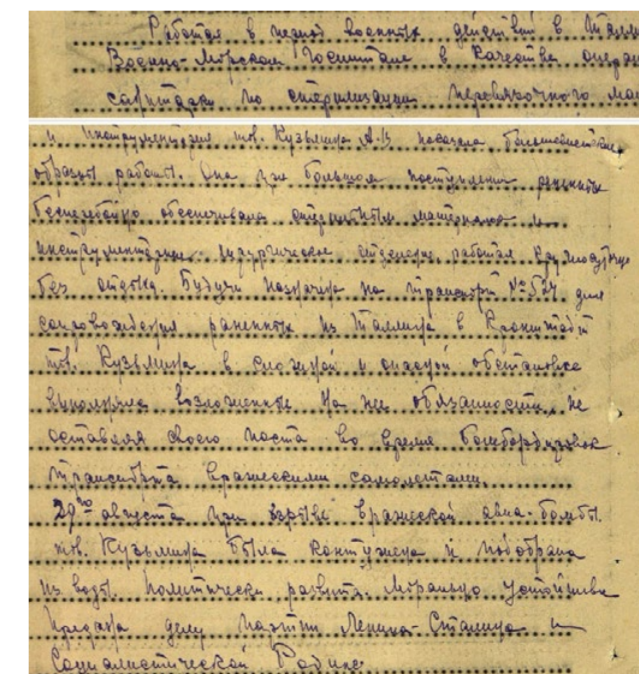 Работая в период военных действий в Талли
Военно-Морском Госпитале в качестве опера
санитарки по стерилизации перевязочного ма
и инструментария тов. Кузьмина А.В показала большевистские
образцы работы. Она при большом поступлении раненных
бесперебойно обеспечивала стерильным материалом и
инструментарием хирургическое отделение, работая круглосуточно
без отдыха. Будучи назначена на транспорт № 524 для
сопровождения раненных из Таллина в Кронштадт
тов. Кузьмина в сложной и опасной обстановке
выполняла возложенные на нее обязанности, не
оставляя своего поста во время бомбардировок
транспорта вражескими самолетами.
29го августа при взрыве вражеской авиа-бомбы.
тов. Кузьмина была контужена и подобрана
из воды. Политически развита. Морально устойчива
Предана делу партии Ленина-Сталина и
Социалистической Родине.